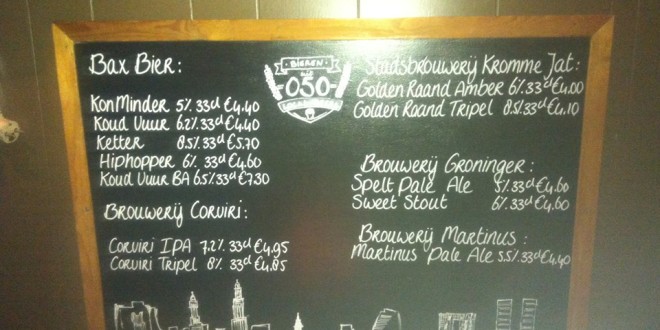 Bax Bier:
KonMinder 5% 33cl €4.40
Koud Vuur 6.2% 33cl €4.40
Ketter 8.5% 33cl €5.70
Hiphopper 6% 33cl €4.60
Koud Vuur BA 6.5% 33cl €7.30
Brouwerij Corviri:
Corviri IPA 7.2% 33cl €4.95
Corviri Tripel 8% 33cl €4.85
BIEREN
UIT
050
Stadsbrouwerij Kromme Jat:
Golden Raand Amber 6% 33cl €4.00
Golden Raand Tripel 8.5% 33cl €4.10
Brouwerij Groninger:
Spelt Pale Ale 5% 33cl €4.60
Sweet Stout 6% 33cl €4.60
Brouwerij Martinus:
Martinus Pale Ale 5.5% 33cl €4.40